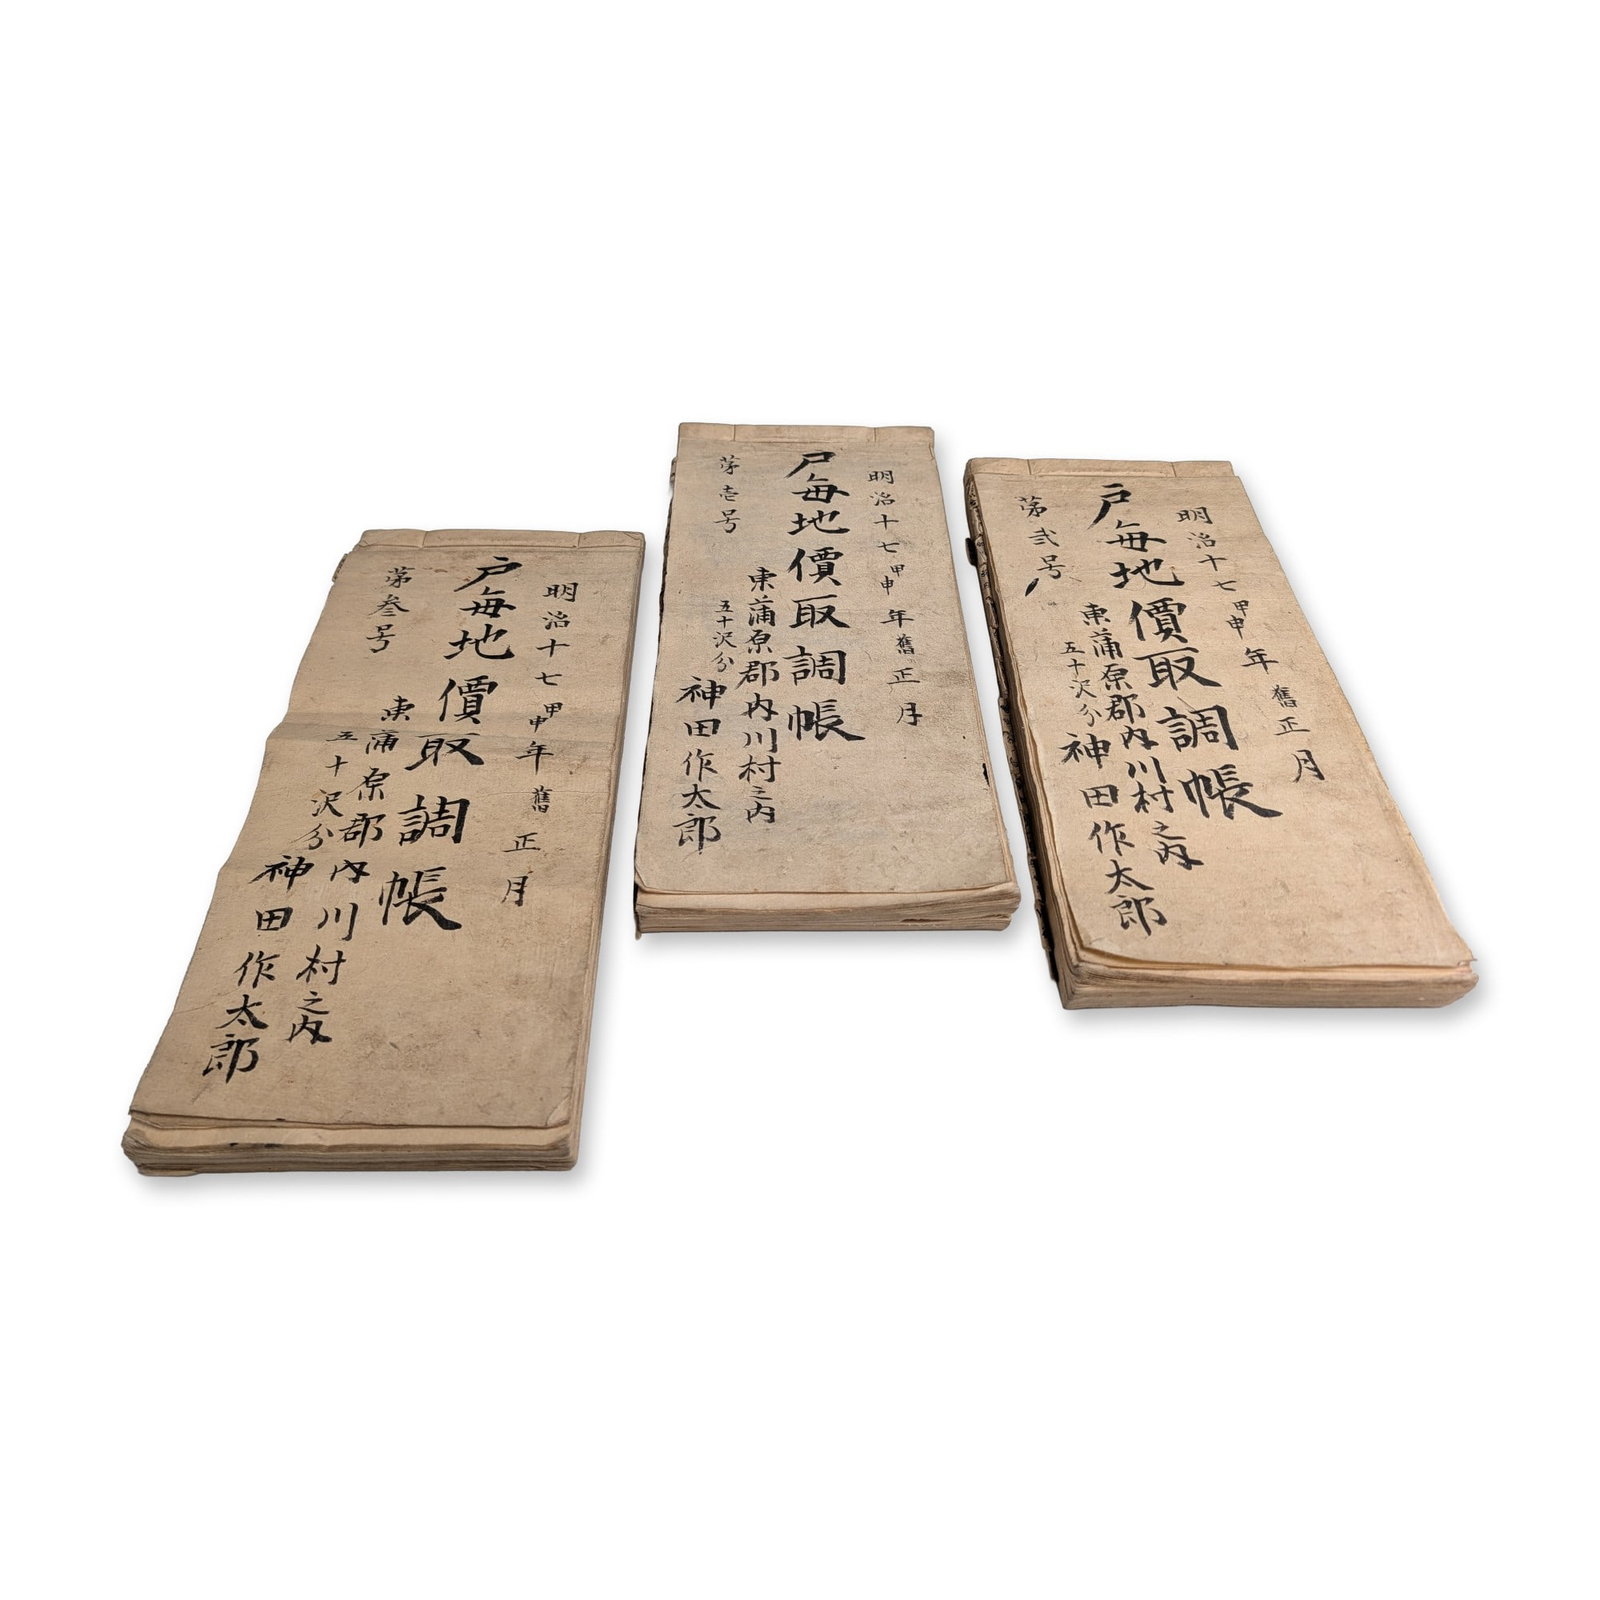 明治十七甲申年舊正月
戸毎地價取調帳
第叁号
東蒲原郡内川村之内
五十沢分
神田作太郎
明治十七甲申年舊正月
戸毎地價取調帳
第壱号
東蒲原郡内川村之内
五十沢分
神田作太郎
明治十七甲申年舊正月
戸毎地價取調帳
第弐号
東蒲原郡内川村之内
五十沢分
神田作太郎